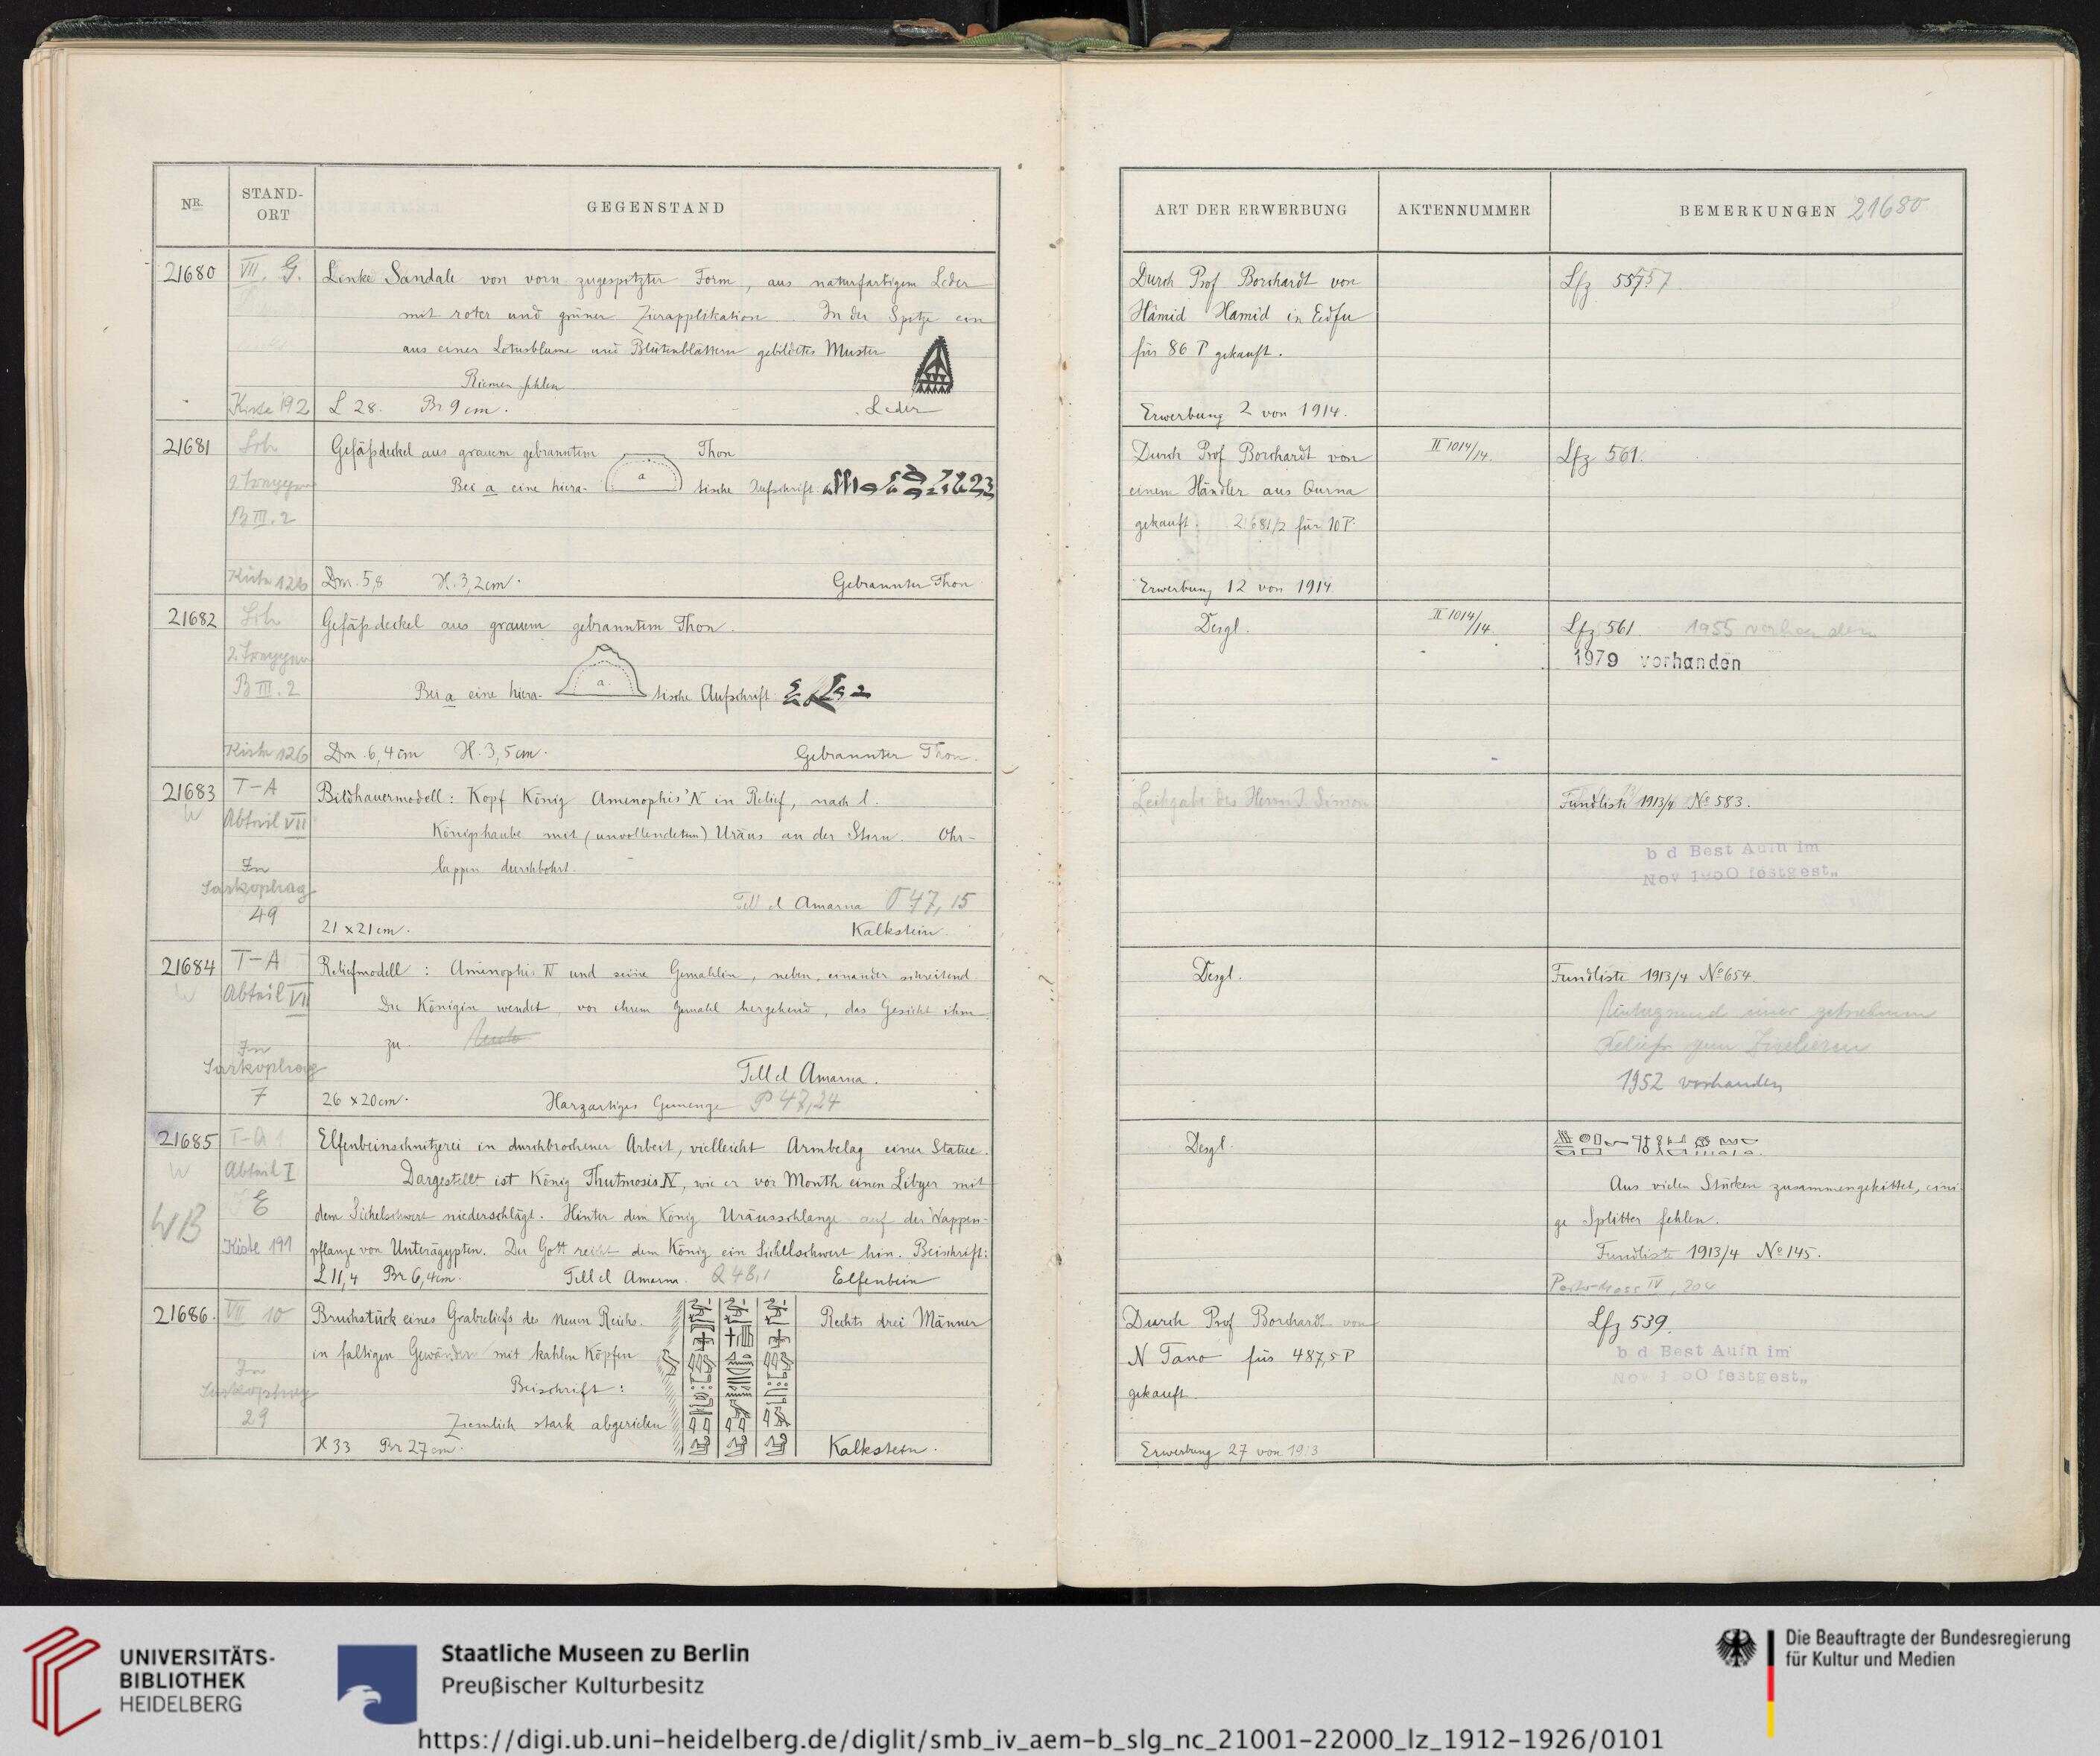 NR.
STAND-
ORT
GEGENSTAND
21680
VII. G.
Linke Sandale von vorn zugespitzter Form, aus naturfarbigem Leder
mit roter und grüner Zierapplikation. In der Spitze ein
aus einer Lotusblume und Blütenblättern gebildetes Muster
Riemen fehlen
Kiste 192
L 28. Br 9 cm.
Leder
21681
Gefäßdeckel aus grauem gebranntem Thon
Bei a eine hiera- a tische Aufschrift
B III. 2
Kiste 126
Dm. 5,8 H. 3,2 cm.
Gebrannter Thon
21682
Gefäßdeckel aus grauem gebranntem Thon.
B III. 2
Bei a eine hiera- a tische Aufschrift:
Kiste 126
Dm. 6,4 cm H. 3,5 cm.
Gebrannter Thon.
21683
W
T-A
Abteil VII
In
Sarkophag
49
Bildhauermodell: Kopf König Amenophis' IV in Relief, nach l.
Königshaube mit (unvollendetem) Uräus an der Stirn. Ohr-
lappen durchbohrt.
Tell el Amarna 47,15
21 x 21 cm.
Kalkstein.
21684
W
T-A
Abteil VII
In
Sarkophag
7
Reliefmodell: Amenophis IV und seine Gemahlin, neben einander schreitend.
Die Königin wendet, vor ihrem Gemahl hergehend, das Gesicht ihm
zu.
Tell el Amarna.
26 x 20 cm.
Harzartiges Gemenge P 47,24
21685
W
WB
T-A
Abteil I
E
Kiste 191
Elfenbeinschnitzerei in durchbrochener Arbeit, vielleicht Armbelag einer Statue.
Dargestellt ist König Thutmosis IV, wie er vor Month einen Libyer mit
dem Sichelschwert niederschlägt. Hinter dem König Uräusschlange auf der Wappen-
pflanze von Unterägypten. Der Gott reicht dem König ein Sichelschwert hin. Beischrift:
L 11,4 Br 6,4 cm.
Tell el Amarna. Q 48,1
Elfenbein
21686.
VII 10
In
Sarkophag
29
Bruchstück eines Grabreliefs des Neuen Reichs.
Rechts drei Männer
in faltigen Gewändern mit kahlen Köpfen
Beischrift:
Ziemlich stark abgerieben
H 33 Br 27 cm.
Kalkstein.
ART DER ERWERBUNG
AKTENNUMMER
BEMERKUNGEN 21680
Durch Prof Borchardt von
Hâmid Hamid in Edfu
für 86 P gekauft.
Erwerbung 2 von 1914.
Lfz 557
Durch Prof Borchardt von
einem Händler aus Qurna
gekauft. 21681/2 für 10 P.
Erwerbung 12 von 1914
II 1014/14.
Lfz 561.
Desgl.
II 1014/14.
Lfz 561. 1955 vorhanden
1979 vorhanden
Leihgabe des Herrn J. Simon
Fundliste 1913/4 No 583.
b d Best Aufn im
Nov 1950 festgest.
Desgl.
Fundliste 1913/4 No 654.
1952 vorhanden
Desgl.
Aus vielen Stücken zusammengekittet, eini-
ge Splitter fehlen.
Fundliste 1913/4 No 145.
Porter-Moss IV, 204
Durch Prof Borchardt von
N Tano für 487,5 P
gekauft.
Erwerbung 27 von 1913
Lfz 539.
b d Best Aufn im
Nov 1950 festgest.
UNIVERSITÄTS-
BIBLIOTHEK
HEIDELBERG
Staatliche Museen zu Berlin
Preußischer Kulturbesitz
Die Beauftragte der Bundesregierung
für Kultur und Medien
https://digi.ub.uni-heidelberg.de/diglit/smb_iv_aem-b_slg_nc_21001-22000_lz_1912-1926/0101